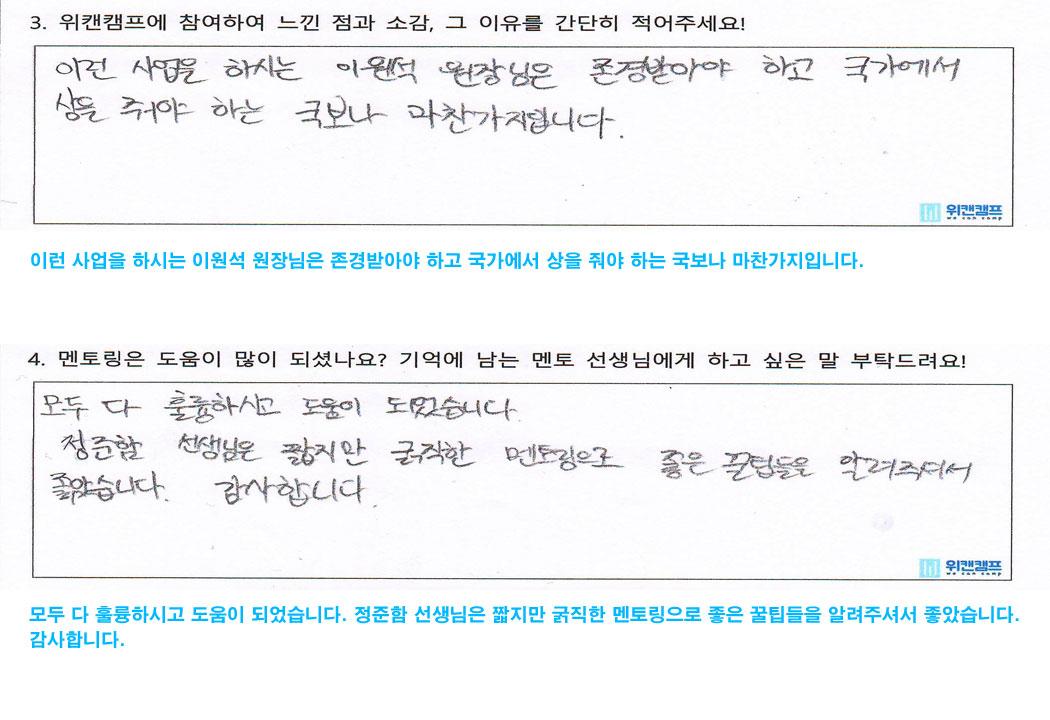 3. 위캔캠프에 참여하여 느낀 점과 소감, 그 이유를 간단히 적어주세요!
이런 사업을 하시는 이원석 원장님은 존경받아야 하고 국가에서
상을 줘야 하는 국보나 마찬가지입니다.
위캔캠프
we can camp
이런 사업을 하시는 이원석 원장님은 존경받아야 하고 국가에서 상을 줘야 하는 국보나 마찬가지입니다.
4. 멘토링은 도움이 많이 되셨나요? 기억에 남는 멘토 선생님에게 하고 싶은 말 부탁드려요!
모두 다 훌륭하시고 도움이 되었습니다.
정준함 선생님은 짧지만 굵직한 멘토링으로 좋은 꿀팁들을 알려주셔서
좋았습니다. 감사합니다.
위캔캠프
we can camp
모두 다 훌륭하시고 도움이 되었습니다. 정준함 선생님은 짧지만 굵직한 멘토링으로 좋은 꿀팁들을 알려주셔서 좋았습니다.
감사합니다.